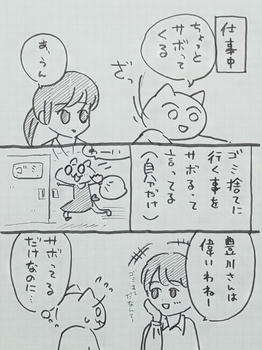 仕事中
ちょっと
サボって
くる
ざっ
あ、うん
ゴミ捨てに
行く事を
サボるって
言ってる
(自分だけ)
ゴミ
わーい
豊川さんは
偉いわねー
サボってる
だけなのに…